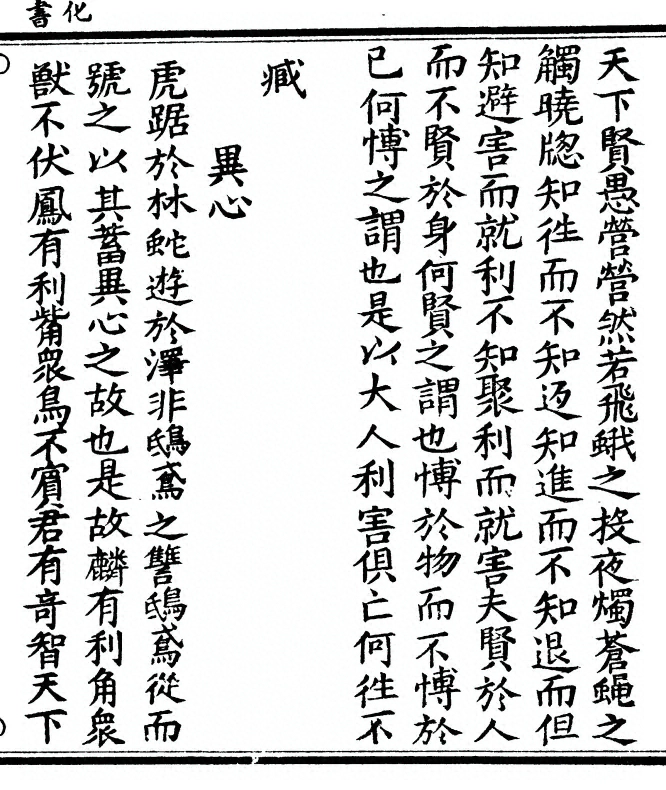 化書
天下賢愚營營然若飛蛾之投夜燭蒼蠅之
觸曉牎知徃而不知返知進而不知退而但
知避害而就利不知聚利而就害夫賢於人
而不賢於身何賢之謂也愽於物而不愽於
已何愽之謂也是以大人利害俱亡何徃不
臧
異心
虎踞於林蛇遊於澤非鴟鳶之讐鴟鳶從而
號之以其蓄異心之故也是故麟有利角衆
獸不伏鳳有利觜衆鳥不賓君有竒智天下